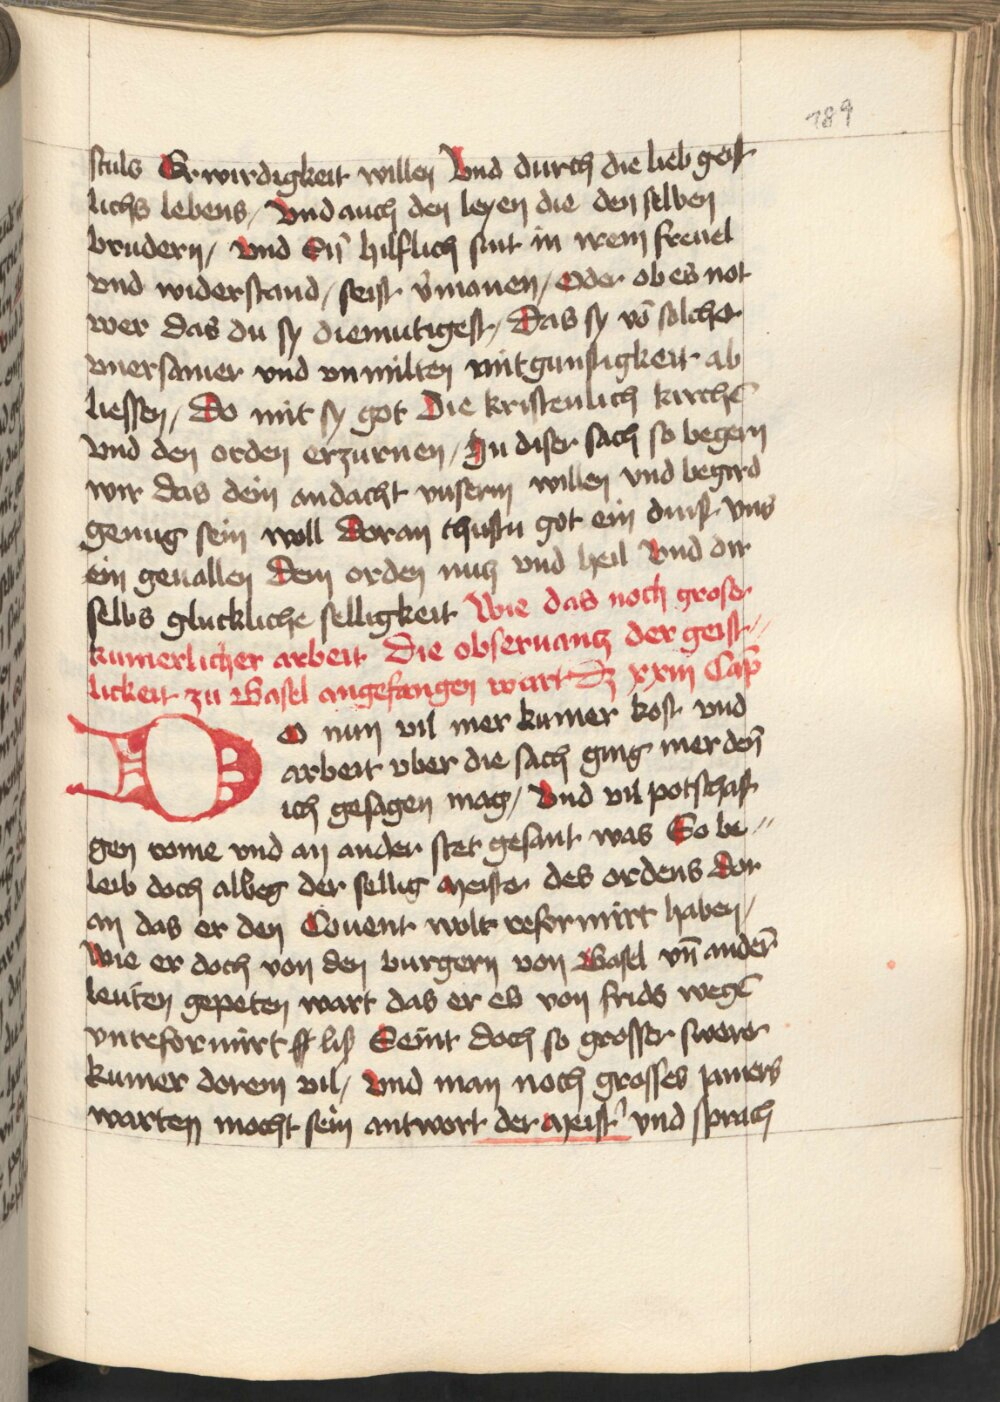 189
stuls Erwirdigkeit willen Vnd durch die lieb geist
lichs lebens / Vnd auch den leyen die den selben
brudern / Vnd En̄ hilflich sint in irem freuel
vnd widerstand / seist v̓manen / Oder ob es not
wer das du sy diemutigest / Das sy vō solcher
vnersamer vnd vnmilten mitgunstigkeit ab
liessen / Do mit sy got Die kristenlich kirchē
vnd den orden erzurnen / In diser sach so begern
wir das dein andacht vnserm willen vnd begird
genug sein woll Doran thustu got ein dinst vns
ein geuallen Dem orden nutz vnd heil Vnd dir
selbs gluckliche selligkeit Wie das noch groser
kumerlicher arbeit Die obseruantz der geist-
lickeit zu Basel angefangen wart Dz xxiii Cap̄
DO nun vil mer kumer kost vnd
arbeit vber die sach ging mer den̄
ich gesagen mag / Vnd vil potschaft
gen rome vnd an ander stet gesant was So be-
leib doch albeg der sellig Meister des ordens Dor
an das er den Couent wolt reformirt haben /
Wie er doch von den burgern von Basel vn̄ ander̄
leuten gepeten wart das er es von frids wegē
vnreformirt liß Seint doch so grosser swerer
kumer dorein vil / Vnd man noch grosses jamers
warten mocht sein antwort der Meist̓ vnd sprach